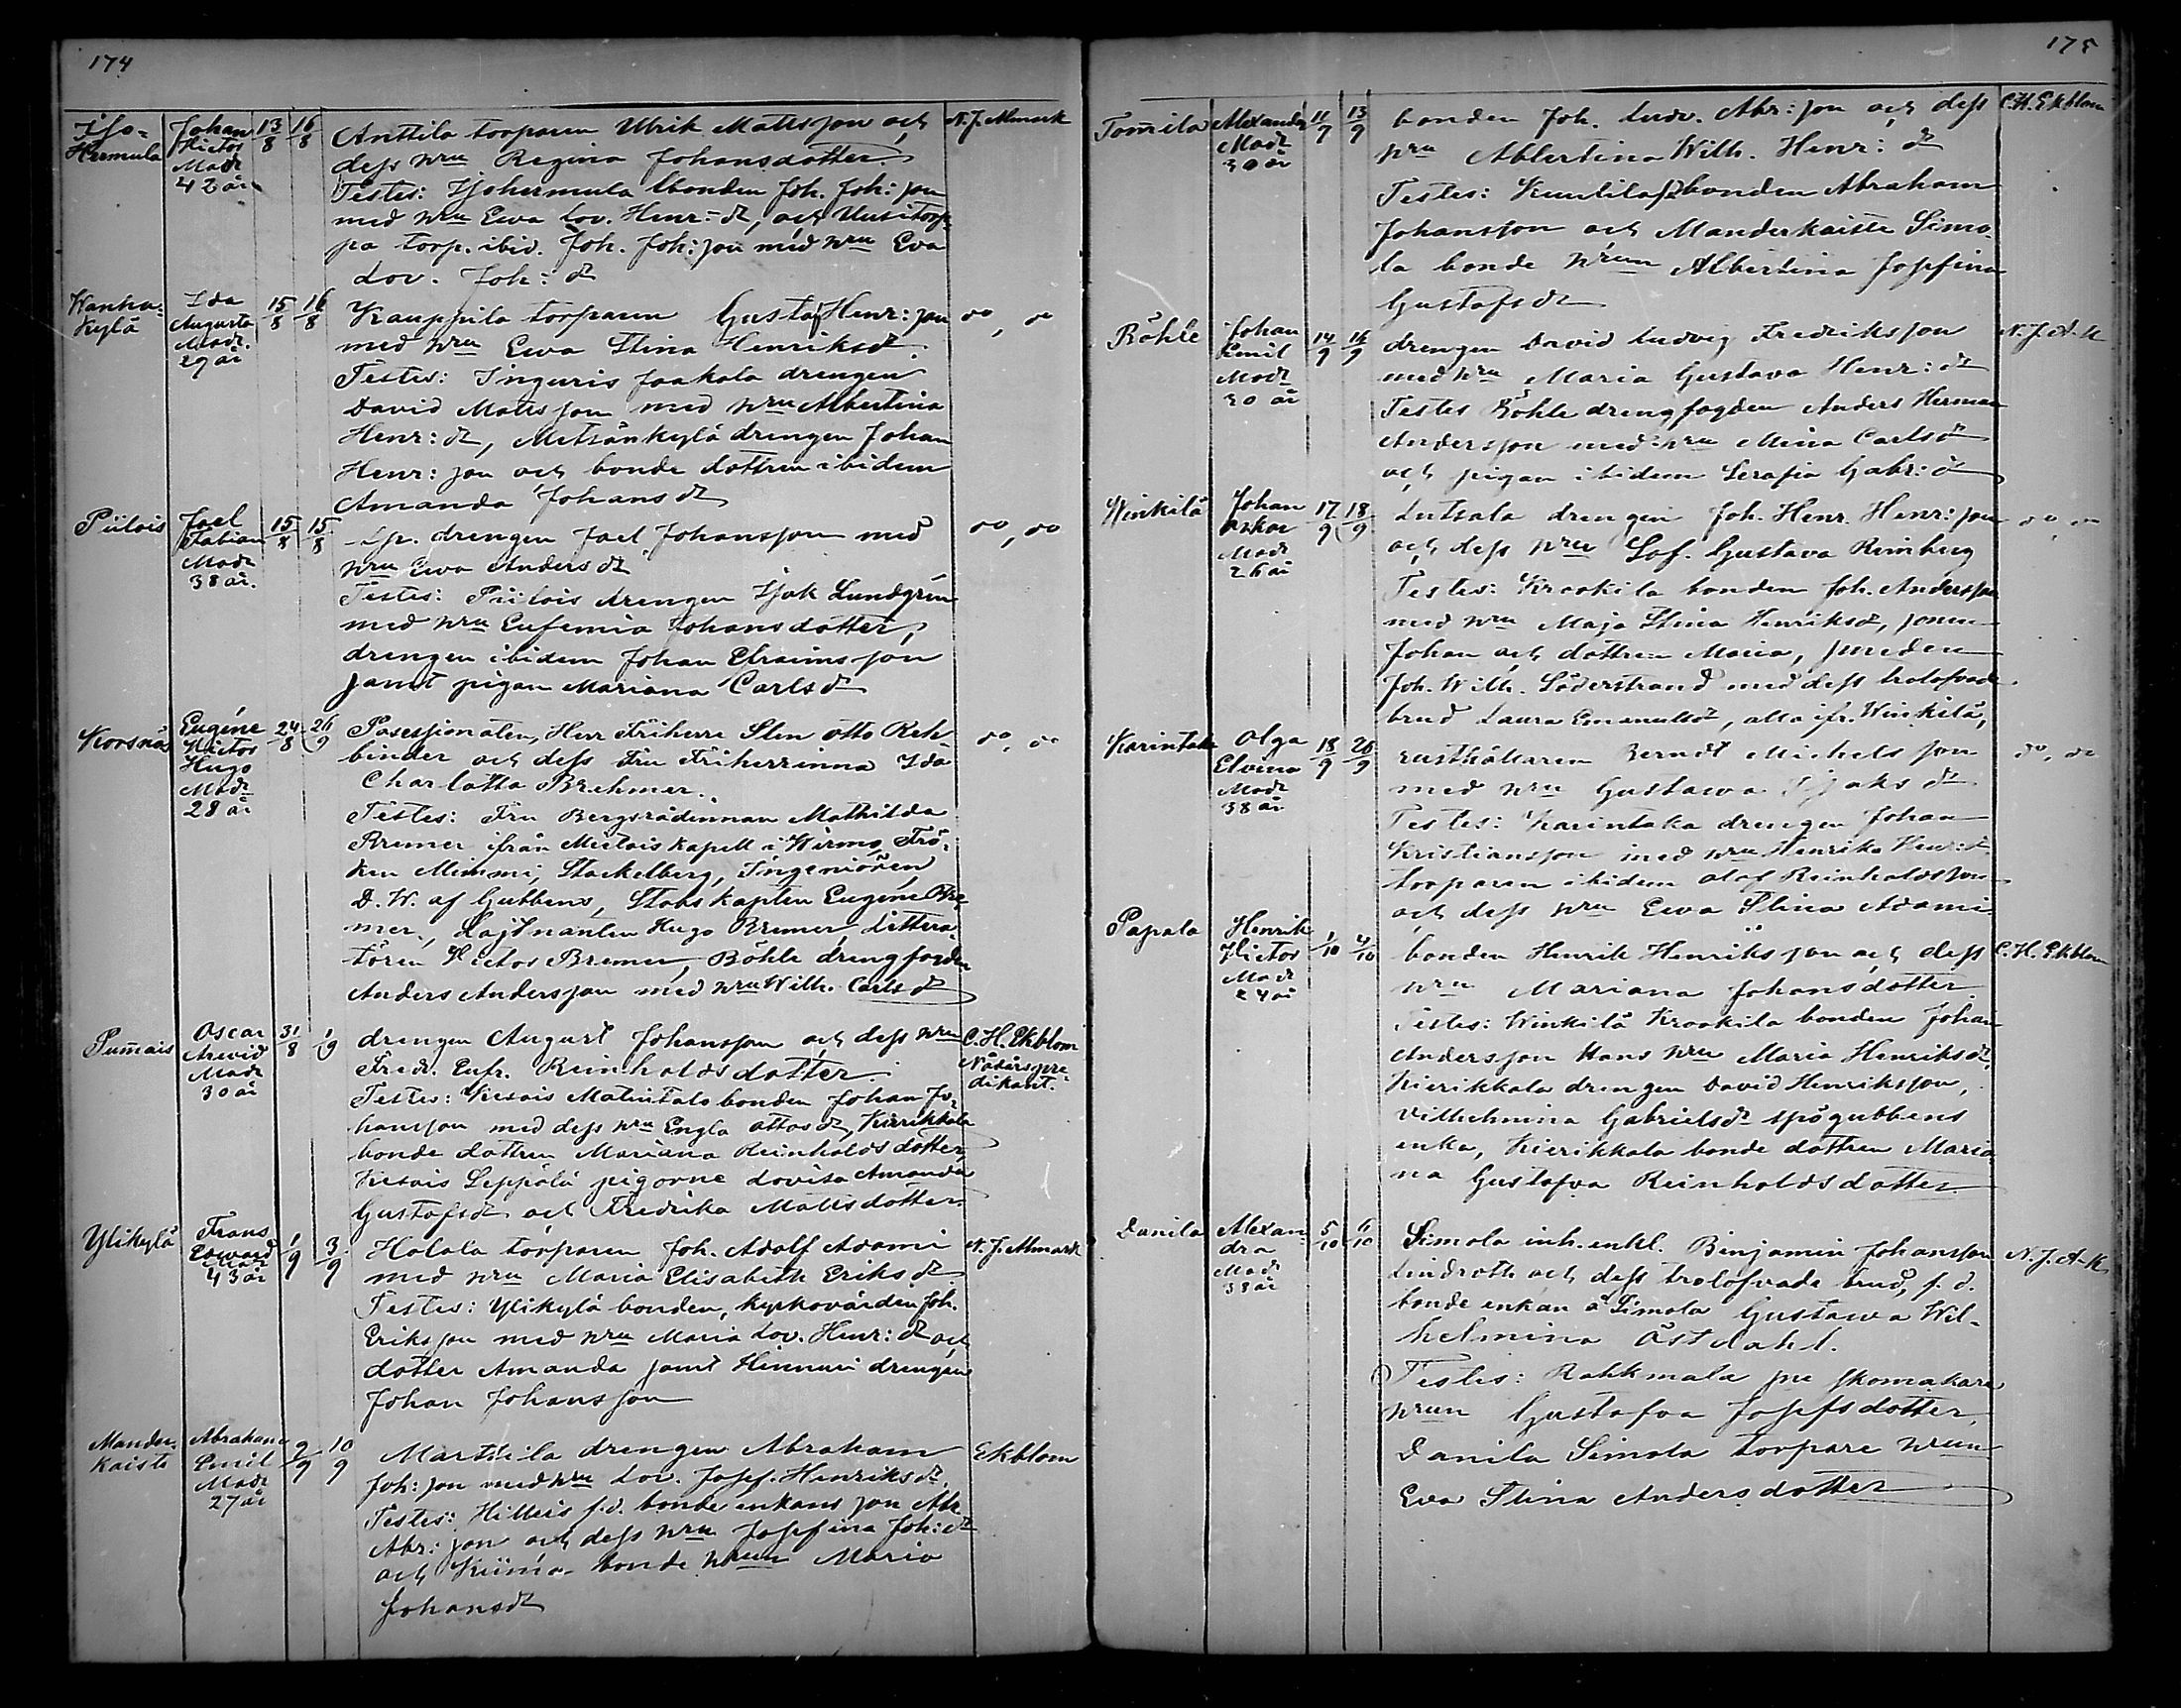 174
Iso-
Hermula
Johan
Victor
Modr
42 år
13/8
16/8
Anttila torparen Ulrik Mattsson och
dess hru Regina Johansdotter.
Testes: Isohermula bonden Joh. Joh:son
med hru Ewa Lov. Henr:dr, och Uusitorp-
pa torp. ibid. Joh. Joh:son med hru Eva
Lov. Joh:dr
N. J. Almark
Wanha-
kylä
Ida
Augusta
Modr.
27 år
15/8
16/8
Krauppila torparen Gustaf Henr:son
med hru Ewa Stina Henriksdr.
Testes: Inguris Jaakola drengen
David Mattsson med hru Albertina
Henr:dr, Metsänkylä drengen Johan
Henr:son och bonde dottren ibidem
Amanda Johansdr
do, do
Piilois
Joel
Fabian
Modr
38 år.
15/8
15/8
Sp. drengen Joel Johansson med
hru Ewa Andersdr
Testes: Piilois drengen Isak Lundgrén
med hru Eufemia Johansdotter,
drengen ibidem Johan Efraimsson
samt pigan Mariana Carlsdr
do, do
Korsnäs
Eugéne
Victor
Hugo
Modr
28 år
24/8
26/9
Possessionaten, Herr Friherre Sten Otto Reh-
binder och dess Fru Friherrinna Ida
Charlotta Brehmer.
Testes: Fru Bergsrådinnan Mathilda
Bremer ifrån Mietois kapell i Wirmo, Frö-
ken Mimmi Stackelberg, Ingeniören
D. W. af Gubbens, Stabskapten Eugéne Bre-
mer, Löjtnanten Hugo Bremer, Littera-
tören Victor Bremer, Böhle drengfogden
Anders Andersson med hru Wilh. Carlsdr
do, do
Pum̄ais
Oscar
Arvid
Modr
30 år
31/8
1/9
drengen August Johansson och dess hru
Fredr. Eufr. Reinholdsdotter.
Testes: Kesois Matintalo bonden Johan Jo-
hansson med dess hru Engla Ottosdr, Kierikkala
bonde dottren Mariana Reinholdsdotter,
Kesois Leppälä pigorne Lovisa Amanda
Gustafsdr och Fredrika Mattsdotter.
C. H. Ekblom
Nådårspre-
dikant.
Ylikylä
Frans
Edward
Modr
43 år
1/9
3/9
Halala torparen Joh. Adolf Adami
med hru Maria Elisabeth Eriksdr.
Testes: Ylikylä bonden, kyrkovärden Joh.
Eriksson med hru Maria Lov. Henr:dr och
dotter Amanda samt Hinnuri drengen
Johan Johansson
N. J. Almark
Mander-
kaiste
Abraham
Emil
Modr
27 år
2/9
10/9
Marttila drengen Abraham
Joh:son med hru Lov. Josef. Henriksdr.
Testes: Hilleis f.d. bonde enkans son Abr.
Abr:son och dess hru Josefina Joh:dr
och Kiima bonde hrun Maria
Johansdr
Ekblom
175
Tom̄ila
Alexander
Modr
30 år
11/9
13/9
bonden Joh. Ludv. Abr:son och dess
hru Albertina Wilh. Henr:dr
Testes: Kuntila bonden Abraham
Johansson och Manderkaiste Simo-
la bonde hrun Albertina Josefina
Gustafsdr
C. H. Ekblom
Böhle
Johan
Emil
Modr
30 år
14/9
16/9
drengen David Ludvig Fredriksson
med hru Maria Gustava Henr:dr
Testes Böhle drengfogden Anders Herman
Andersson med hru Mina Carlsdr
och pigan ibidem Serafia Gabr:dr
N. J. A-k
Winkilä
Johan
Oskar
Modr
26 år
17/9
18/9
Lutsala drengen Joh. Henr. Henr:son
och dess hru Sof. Gustava Renberg
Testes: Krookila bonden Joh. Andersson
med hru Maja Stina Henriksdr, sonen
Johan och dottren Maria, smeden
Joh. Wilh. Söderstrand med dess trolofvade
brud Laura Emanuelsdr, alla ifr. Winkilä,
do, do
Karintaka
Olga
Elvina
Modr
38 år
18/9
26/9
rusthållaren Berndt Michelsson
med hru Gustawa Isaksdr
Testes: Karintaka drengen Johan
Kristiansson med hru Henrika Henr:dr
torparen ibidem Olof Reinholdsson
och dess hru Ewa Stina Adami
do, do
Papala
Henrik
Victor
Modr
24 år
1/10
4/10
bonden Henrik Henriksson och dess
hru Mariana Johansdotter
Testes: Winkilä Krookila bonden Johan
Andersson hans hru Maria Henriksdr,
Kierikkala drengen David Henriksson,
Vilhelmina Gabrielsdr spögubbens
enka, Kierikkala bonde dottren Maria-
na Gustafva Reinholdsdotter
C. H. Ekblom
Danila
Alexan-
dra
Modr
38 år
5/10
6/10
Simola inh. enkl. Binjamin Johansson
Lindroth och dess trolofvade brud, f. d.
bonde enkan å Simola Gustawa Wil-
helmina Östdahl.
Testes: Rahkmala skomakare
hrun Gustafva Josefsdotter,
Danila Simola torpare hrun
Eva Stina Andersdotter
N. J. A-k